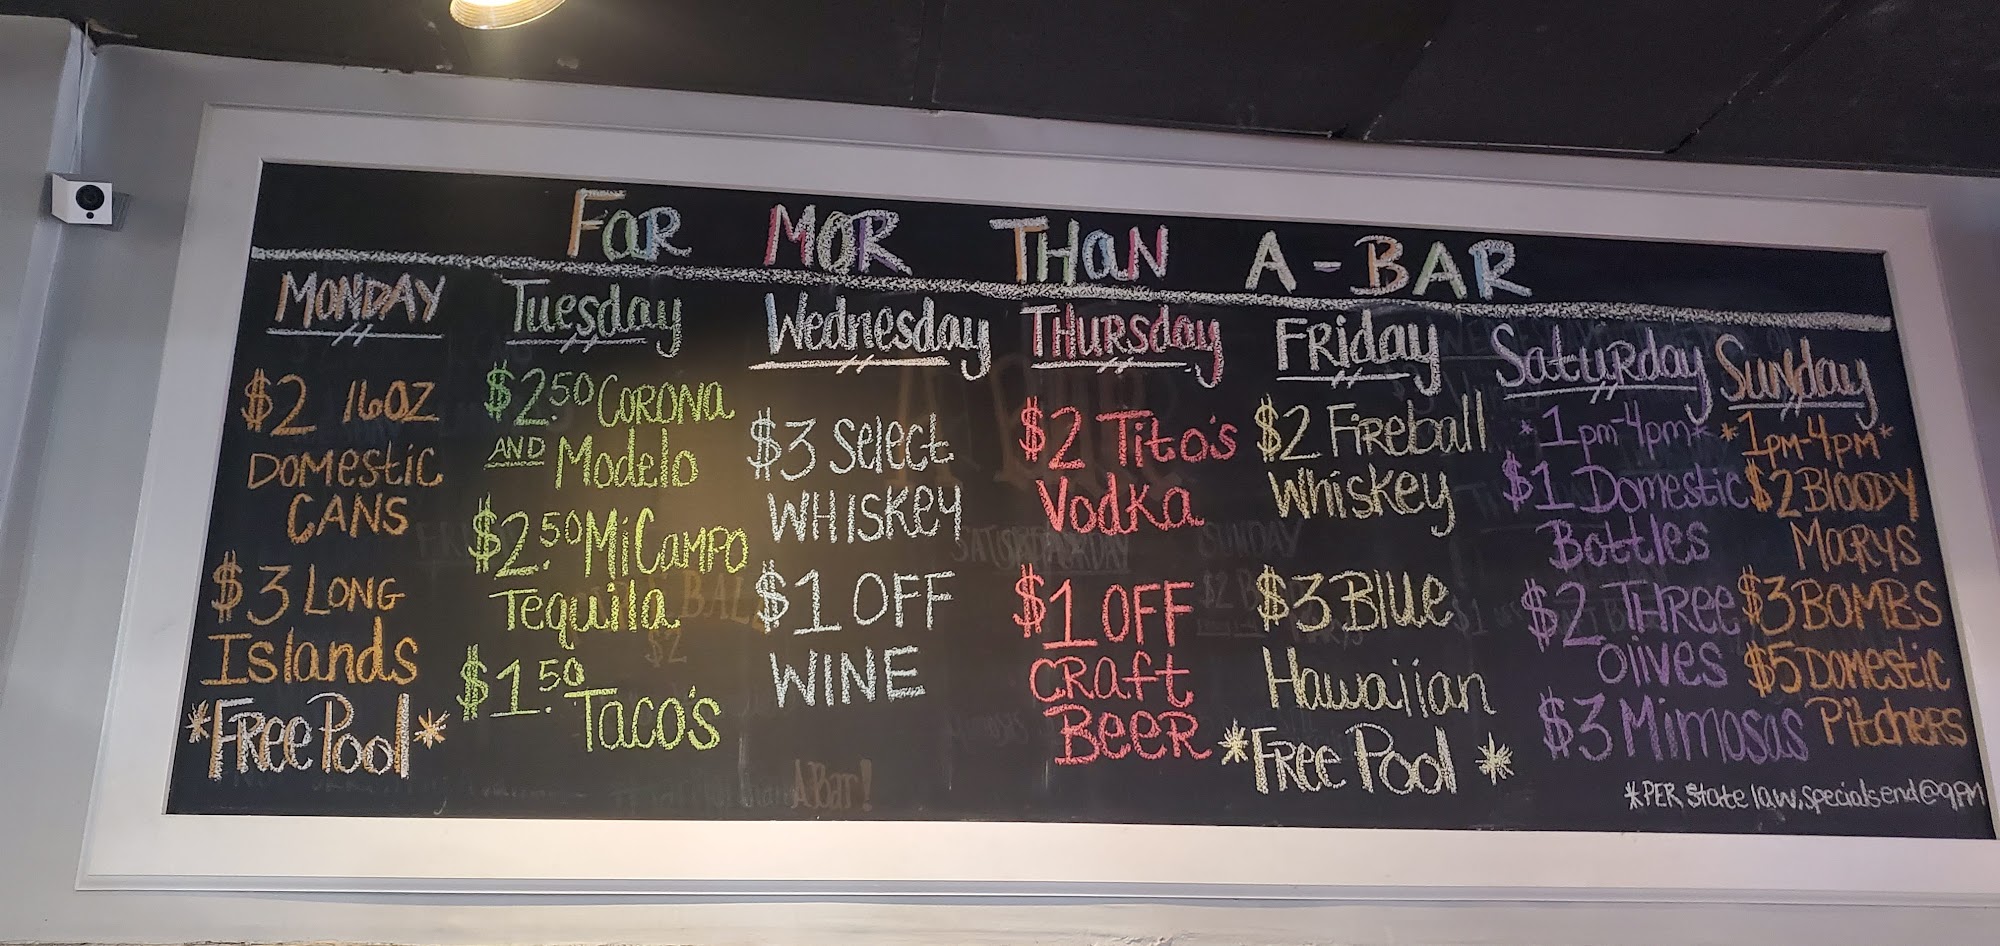 FaR MOR THaN A-BAR
MONDAY
$2 16OZ
DOMestic
CANS
$3 LONG
Islands
*FRee Pool*
Tuesday
$2.50 CORONa
AND Modelo
$2.50 Mi CAMPO
Tequila
$1.50 Taco's
Wednesday
$3 Select
WHISKEY
$1 OFF
WINE
THURSday
$2 Tito's
Vodka
$1 OFF
CRaft
BeeR
FRiday
$2 FiReball
Whiskey
$3 Blue
Hawaiian
*FRee Pool*
SatuRday
*1pm-4pm*
$1 Domestic
Bottles
$2 THRee
Olives
$3 Mimosas
Sunday
*1pm-4pm*
$2 BlOODY
MaRYS
$3 BOMBS
$5 DOMestic
PitcheRs
*PER State law, specials end @ 9pm